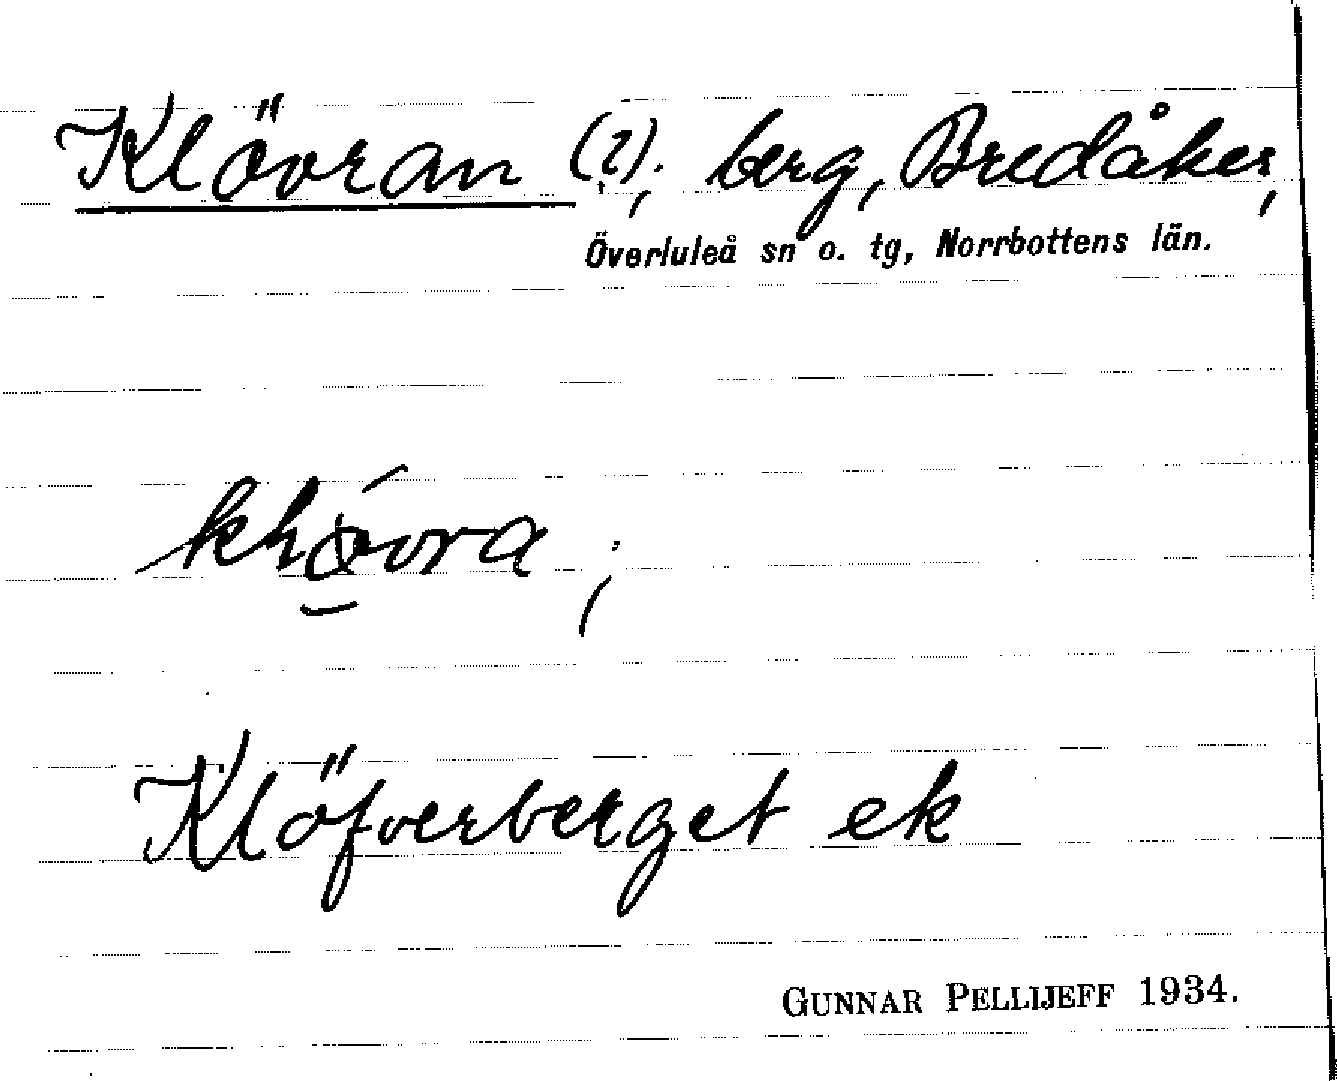 Klövran (?), berg, Bredåker,
Överluleå sn o. tg, Norrbottens län.
Klöfverberget ek
GUNNAR PELLIJEFF 1934.